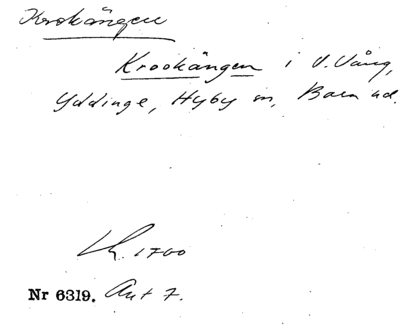 Krokängen
Krookängen i V. Vång,
Yddinge, Hyby sn, Bara hd.
Lh. 1700
Nr 6319. Akt 7.